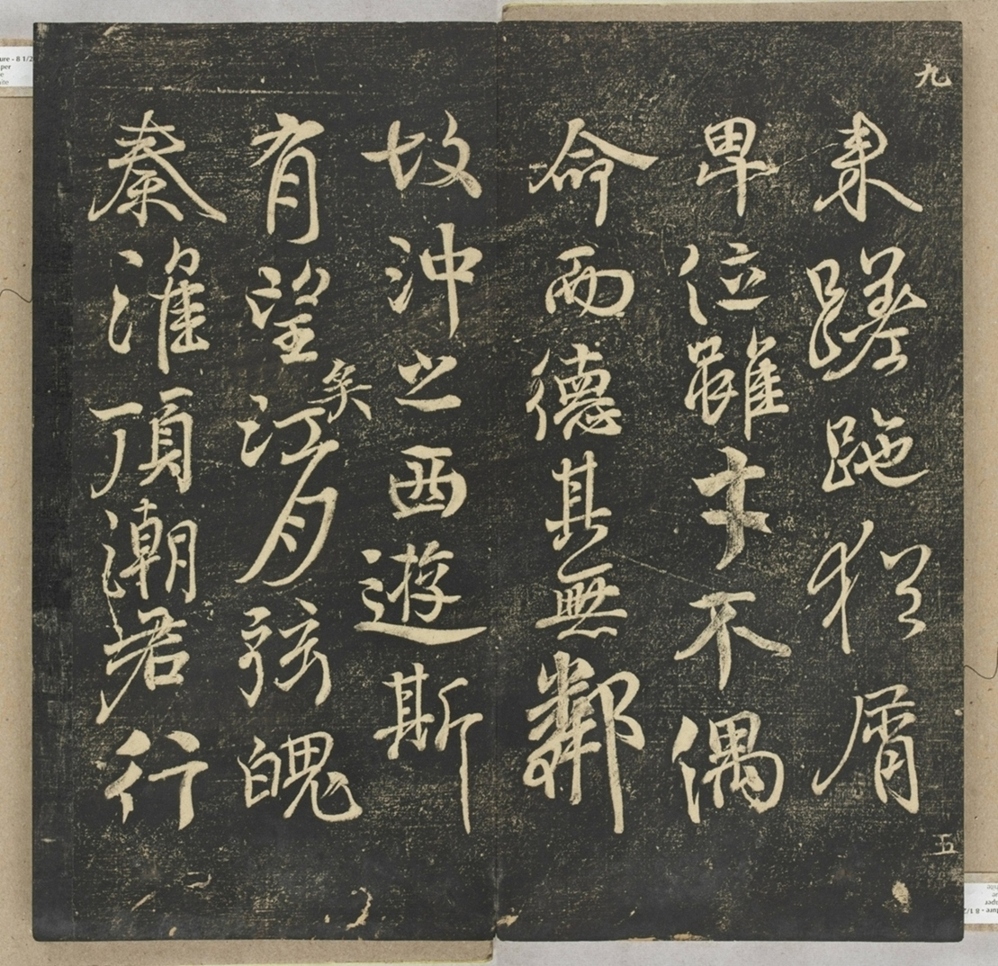 九
来蹉跎猶屑
卑位雖才不偶
命而德其無鄰
故沖之西遊斯
有望矣江月弦魄
秦淮頂潮君行
五